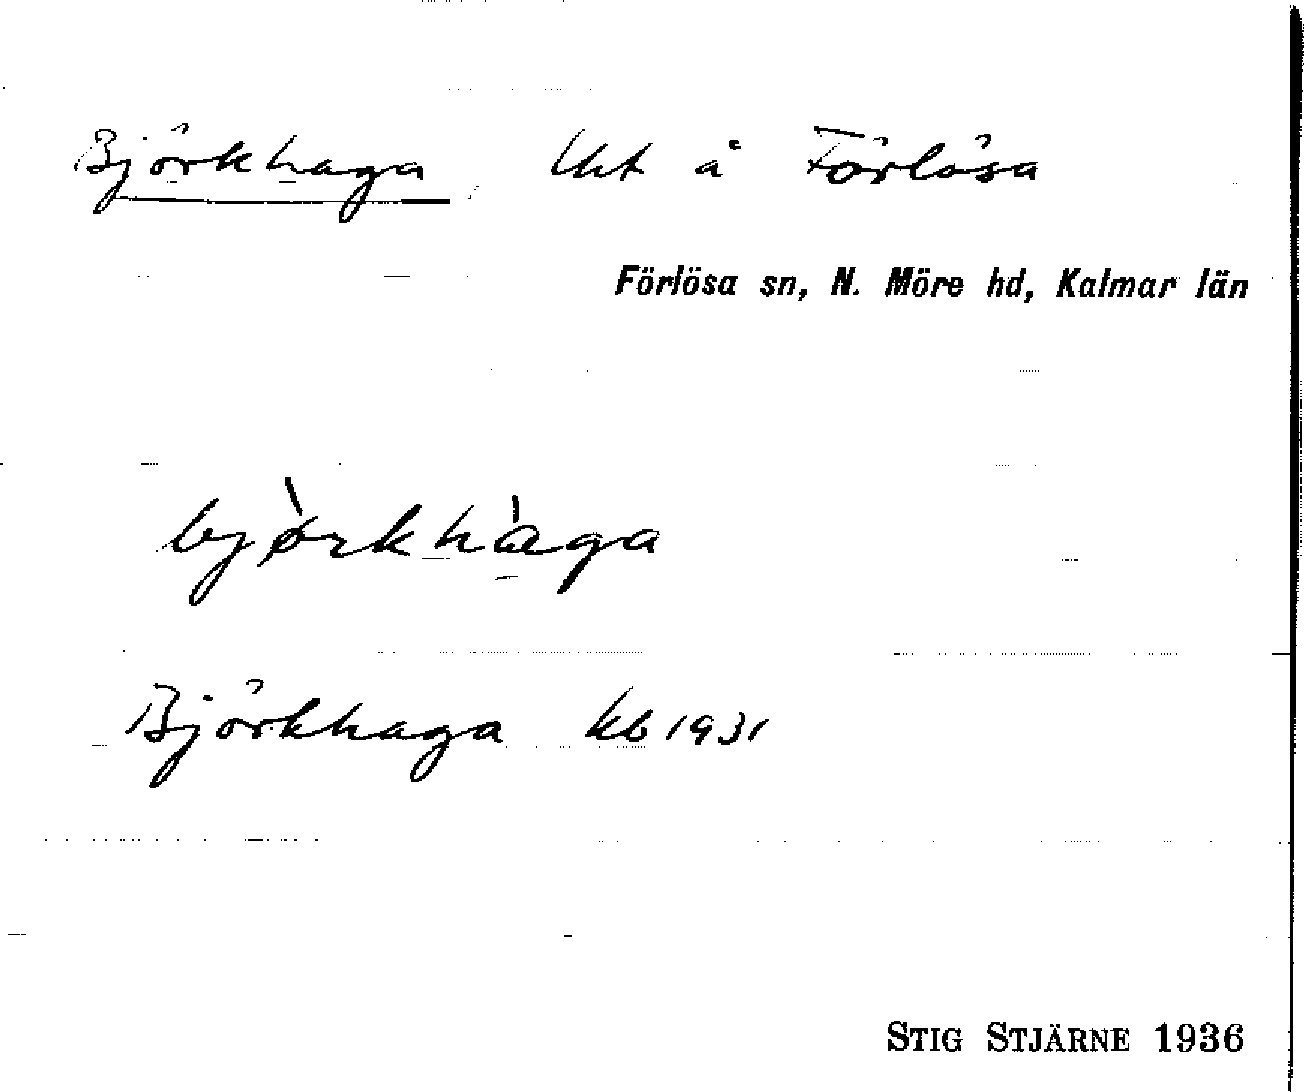 Björkhaga Lht å Förlösa
Förlösa sn, N. Möre hd, Kalmar län
bjø̀rkhàga
Björkhaga kb 1931
STIG STJÄRNE 1936